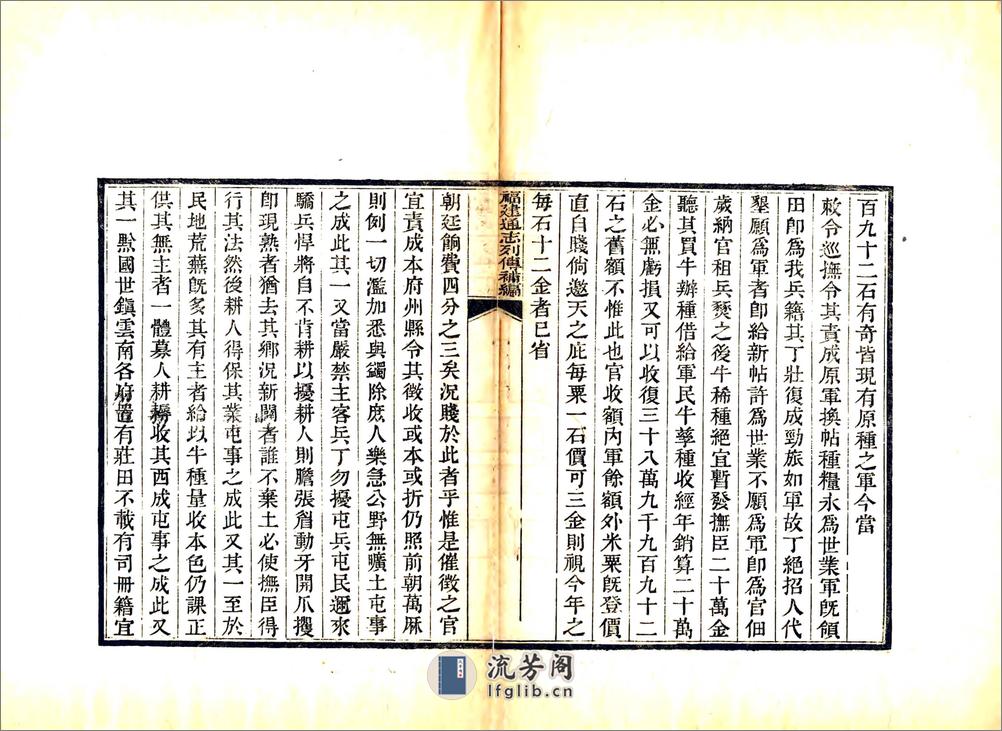 百九十二石有奇皆現有原種之軍今當
敕令巡撫令其責成原軍換帖種糧永爲世業軍旣領
田卽爲我兵籍其丁壯復成勁旅如軍故丁絕招人代
墾願爲軍者卽給新帖許爲世業不願爲軍卽爲官佃
歲納官租兵燹之後牛稀種絕宜暫發撫臣二十萬金
聽其買牛辦種借給軍民牛孳種收經年銷算二十萬
金必無虧損又可以收復三十八萬九千九百九十二
石之舊額不惟此也官收額內軍餘額外米粟旣登價
直自賤倘邀天之庇每粟一石價可三金則視今年之
每石十二金者已省
福建通志列傳補編
朝廷餉費四分之三矣況賤於此者乎惟是催徵之官
宜責成本府州縣令其徵收或本或折仍照前朝萬厤
則例一切濫加悉與蠲除庶人樂急公野無曠土屯事
之成此其一又當嚴禁主客兵丁勿擾屯兵屯民邇來
驕兵悍將自不肯耕以擾耕人則膽張眉動牙開爪攫
卽現熟者猶去其鄉況新闢者誰不棄土必使撫臣得
行其法然後耕人得保其業屯事之成此又其一至於
民地荒蕪旣多其有主者給以牛種量收本色仍課正
供其無主者一體募人耕耨收其西成屯事之成此又
其一黙國世鎮雲南各府置有莊田不載有司冊籍宜
流芳阁
lfglib.cn